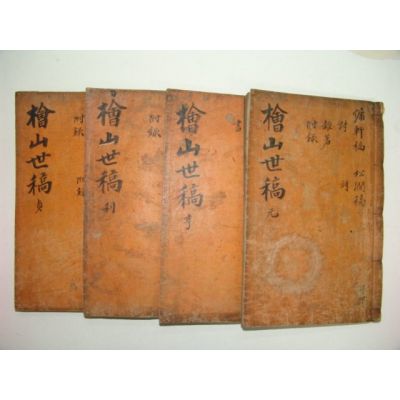 慵軒稿 松澗稿
詩 詩
雜著
附錄
檜山世稿 元
檜山世稿 亨
附錄
檜山世稿 利
附錄 附錄
檜山世稿 貞